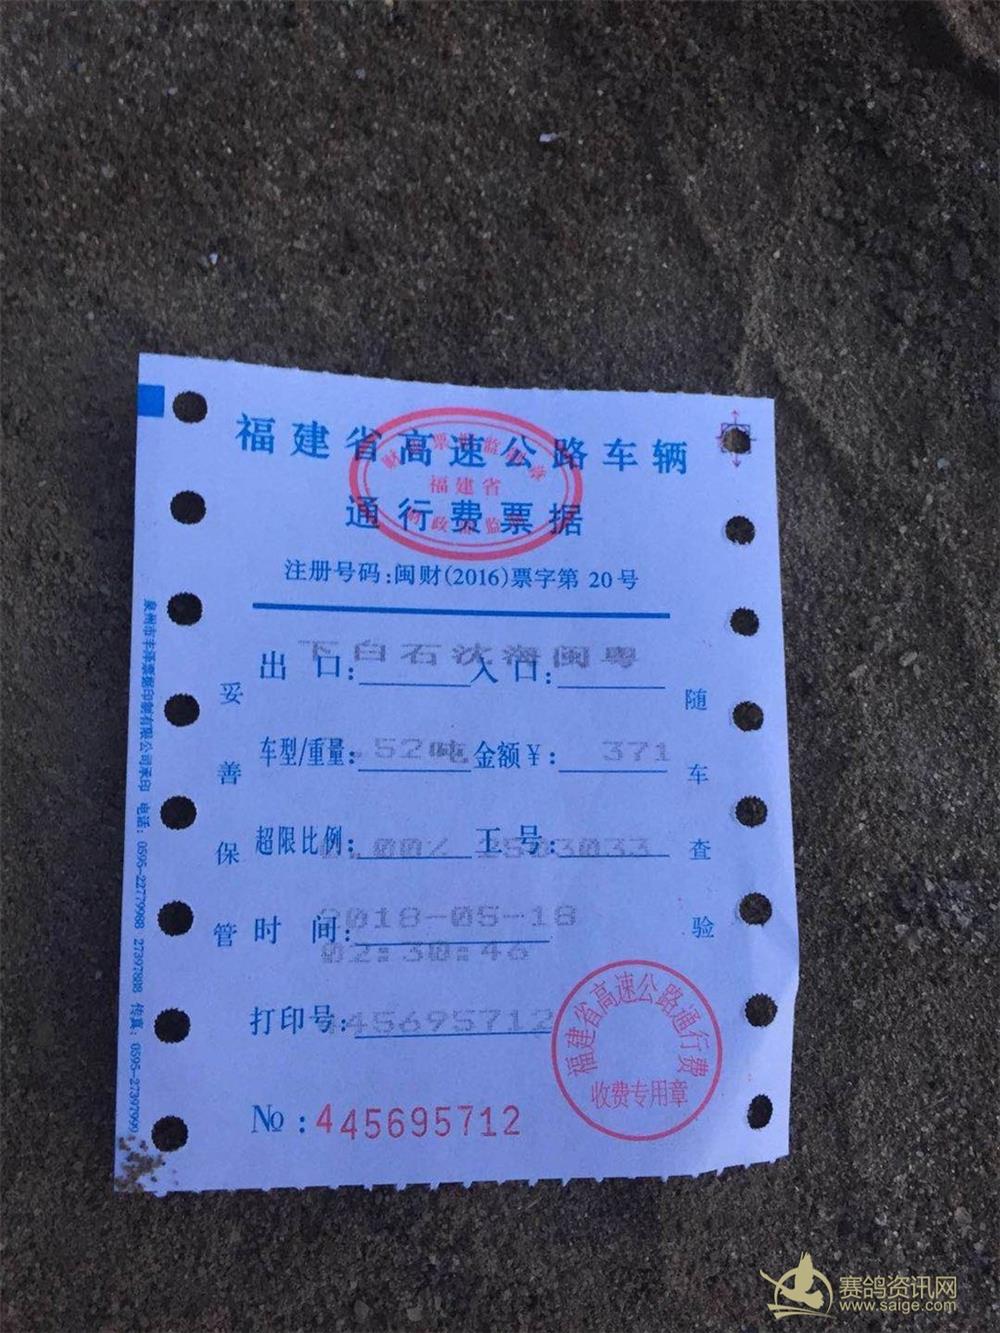 福建省高速公路车辆
福建省
通行费票据
注册号码:闽财(2016)票字第 20号
下白石沈海闽粤
出 口: 入 口:
车型/重量: .52吨 金额¥: 371
超限比例: .00% 工 号: 2503033
时 间: 2018-05-18
02:30:46
打印号: 445695712
№:445695712
妥善保管
随车查验
泉州市丰泽票据印制有限公司承印 电话: 0595-22779988 27397888 传真: 0595-27397999
福建省高速公路通行费
收费专用章
赛鸽资讯网
www.saige.com